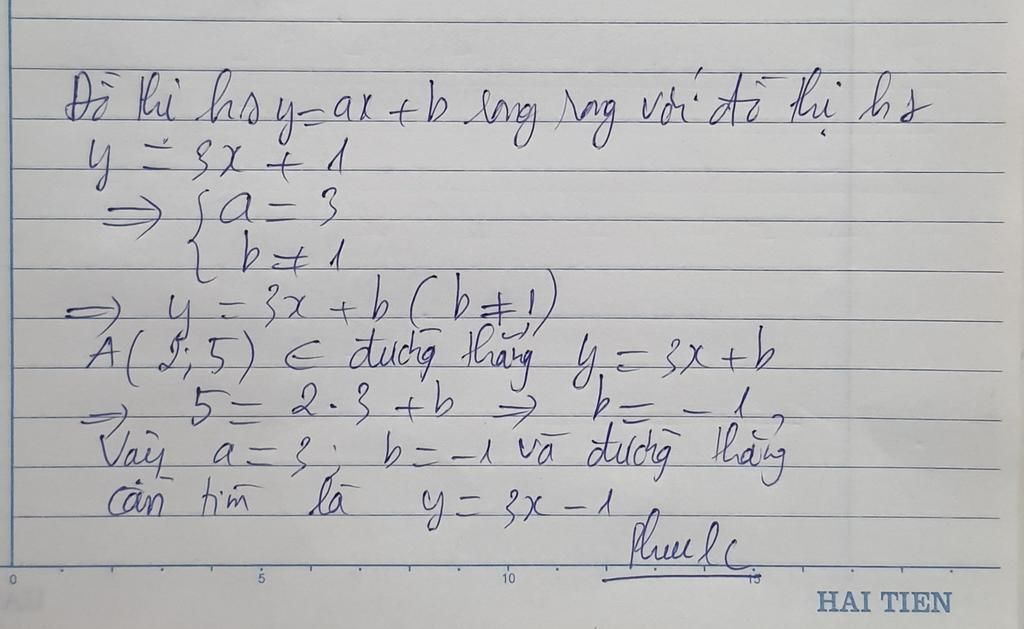 Đồ thị hs y = ax + b song song với đồ thị hs
y = 3x + 1
⇒ { a = 3
b ≠ 1
⇒ y = 3x + b ( b ≠ 1 )
A( 2; 5 ) ∈ đường thẳng y = 3x + b
⇒ 5 = 2 . 3 + b ⇒ b = - 1
Vậy a = 3 ; b = -1 và đường thẳng
cần tìm là y = 3x - 1
0 5 10 15
HAI TIEN